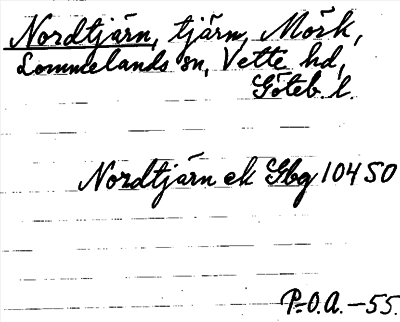 Nordtjärn, tjärn, Mörk,
Lommelands sn, Vette hd,
Göteb. l.
Nordtjärn ek Gbg 10450
P.-O.A. -55.